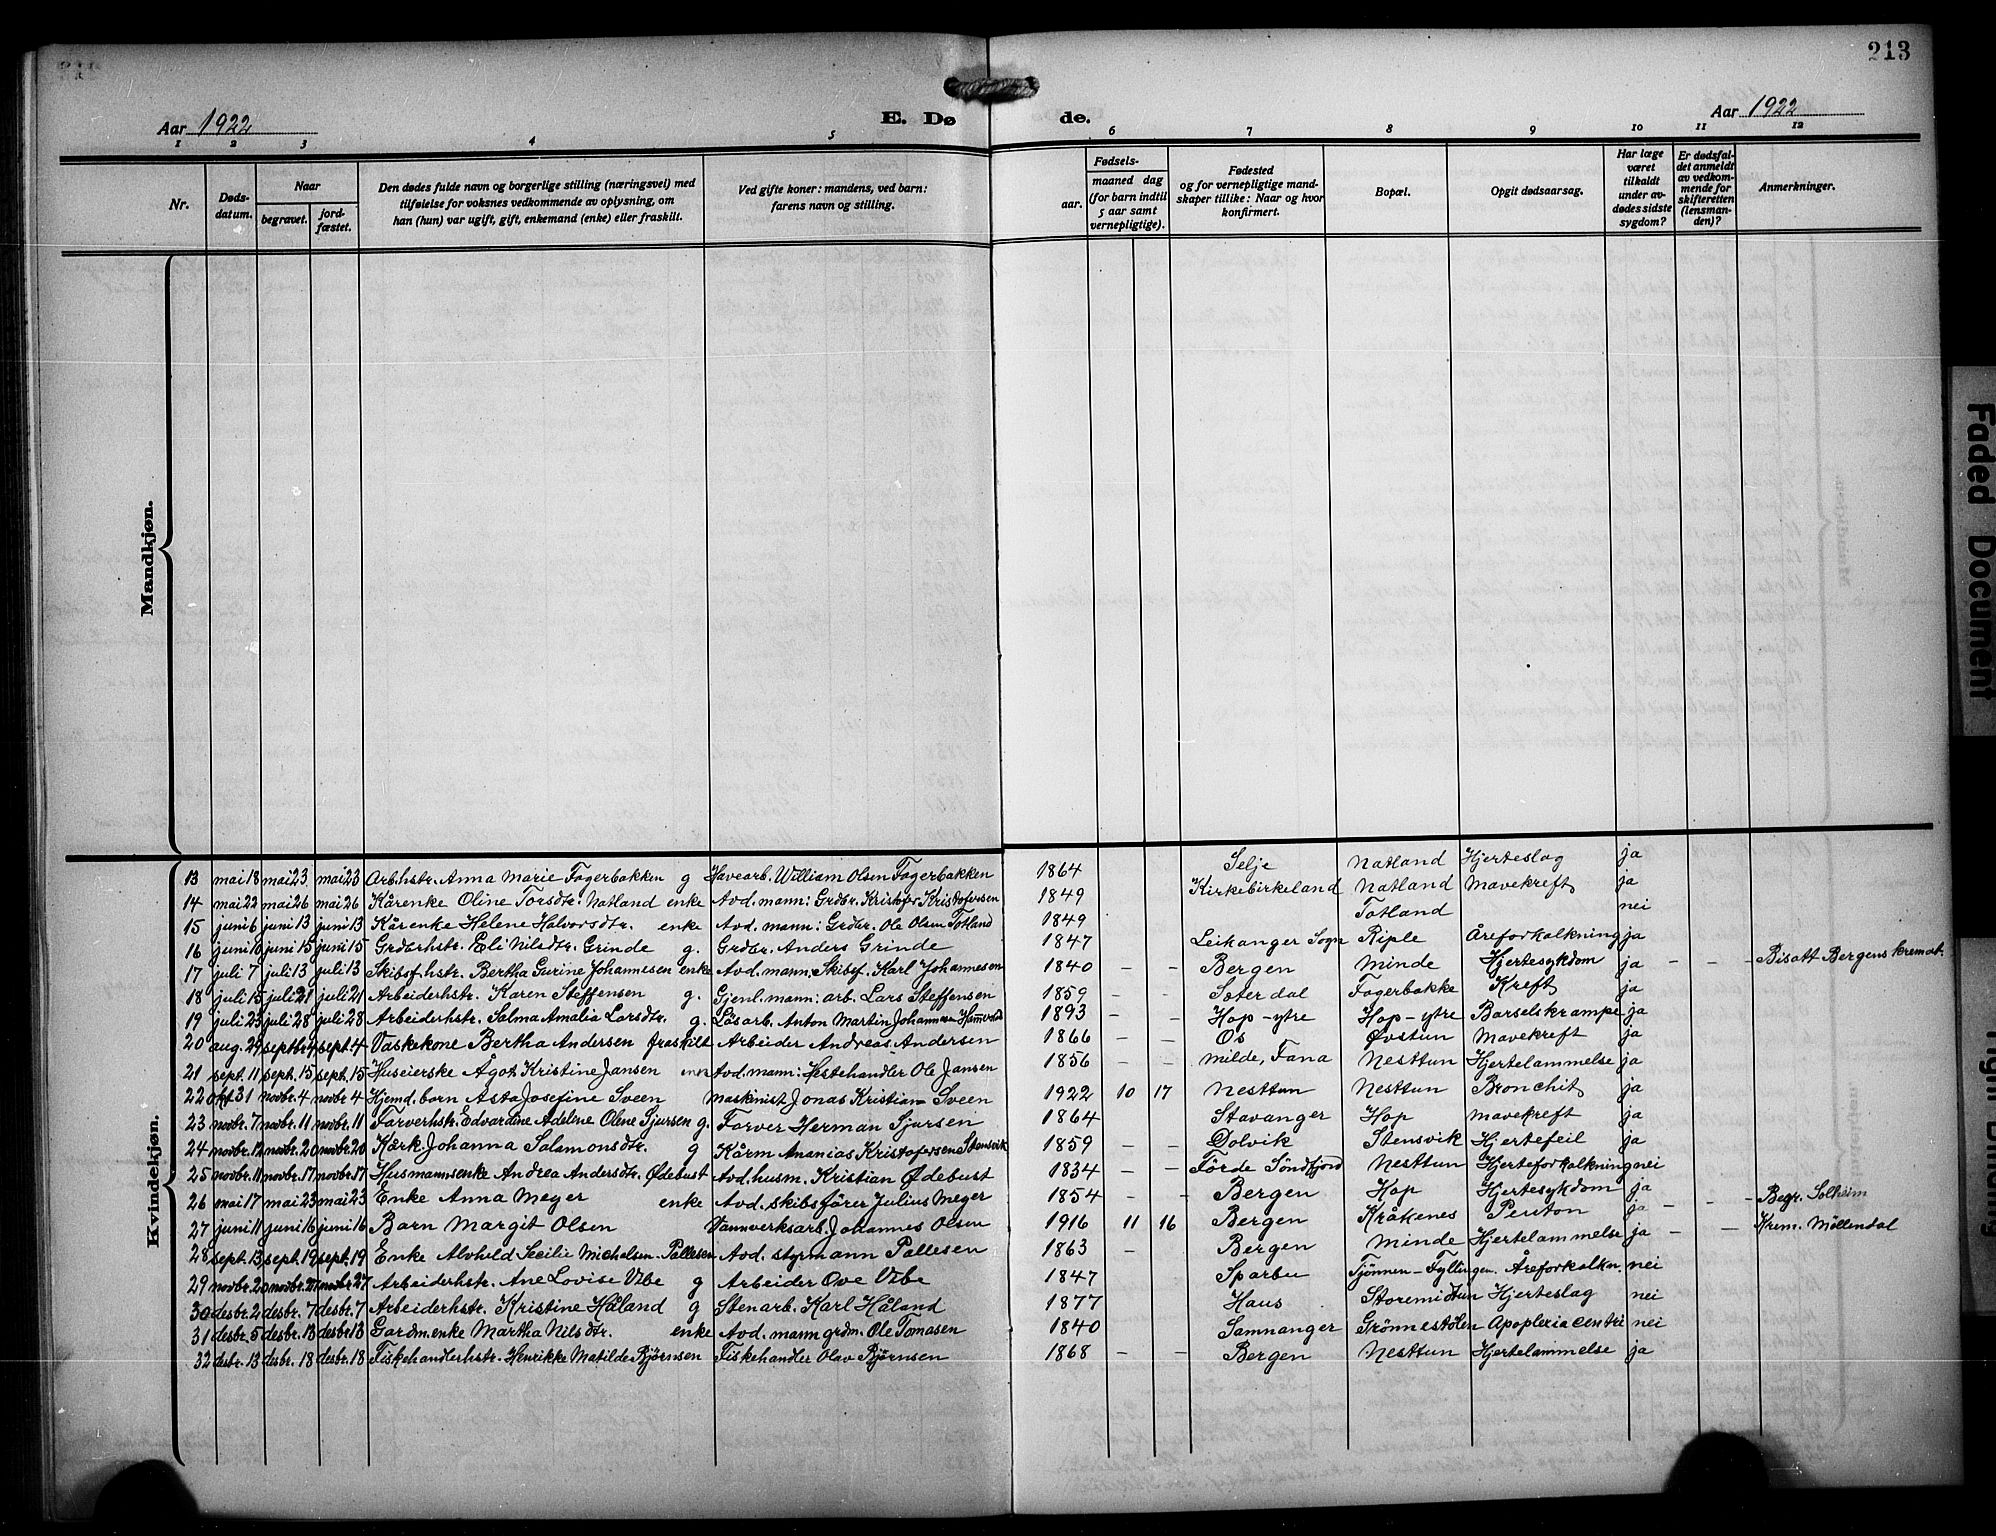 213
Aar 1922
E. Dø de.
Aar 1922
1 2 3 4 5 6 7 8 9 10 11 12
Nr.
Døds-datum.
Naar
begravet.
jord-fæstet.
Den dødes fulde navn og borgerlige stilling (næringsvei) med tilføielse for voksnes vedkommende av oplysning, om han (hun) var ugift, gift, enkemand (enke) eller fraskilt.
Ved gifte koner: mandens, ved barn: farens navn og stilling.
Fødsels-
aar.
maaned dag (for barn indtil 5 aar samt vernepligtige).
Fødested og for vernepligtige mand-skaper tillike: Naar og hvor konfirmert.
Bopæl.
Opgit dødsaarsag.
Har læge været tilkaldt under av-dødes sidste sygdom?
Er dødsfal-det anmeldt av vedkom-mende for skifteretten (lensman-den)?
Anmerkninger.
Mandkjøn.
Kvindekjøn.
13 mai 18 mai 23 mai 23 Arb.hstr. Anna Marie Fagerbakken g Havearb. William Olsen Fagerbakken 1864 Selje Natland Hjerteslag ja
14 mai 22 mai 26 mai 26 Kårenke Oline Torsdtr. Natland enke Avd. mann: Grdbr. Kristofer Kristofersen 1849 Kirkebirkeland Natland Mavekreft ja
15 juni 6 juni 13 juni 13 Kårenke Helene Halvorsdtr. enke Avd. mann: Grdbr. Ole Olsen Totland 1849 Totland nei
16 juni 10 juni 15 juni 15 Grdbrhstr. Eli Nilsdtr. Grinde g. Grdbr. Anders Grinde 1847 Leikanger Sogn Riple Åreforkalkning ja
17 juli 7 juli 13 juli 13 Skibsf.hstr. Bertha Gurine Johannesen enke Avd. mann: Skibsf. Karl Johannesen 1840 – – Bergen Minde Hjertesykdom ja – – – Bisatt Bergens kremat.
18 juli 15 juli 21 juli 21 Arbeiderhstr. Karen Steffensen g. Gjenl. mann: arb. Lars Steffensen 1859 – – Sæterdal Fagerbakke Kreft ja
19 juli 23 juli 28 juli 28 Arbeiderhstr. Selma Amalia Larsdtr. g. Løsarb. Anton Martin Johannesen 1893 – – Hop-ytre Hop-ytre Barselskrampe ja
20 aug. 29 septbr 4 sept. 4 Vaskekone Bertha Andersen fraskilt Arbeider Andreas Andersen 1866 – – Os Øvstun Mavekreft ja
21 sept. 11 sept. 15 sept. 15 Huseierske Ågot Kristine Jansen enke Avd. mann: Hestehandler Ole Jansen 1856 – – Milde, Fana Nesttun Hjertelammelse ja
22 okt 31 novbr. 4 novbr 4 Hjemd. barn Asta Josefine Sveen Maskinist Jonas Kristian Sveen 1922 10 17 Nesttun Nesttun Bronchit ja
23 novbr. 7 novbr. 11 novbr. 11 Farverhstr. Edvardine Adelene Oline Sjursen g. Farver Herman Sjursen 1864 Stavanger Hop Mavekreft ja
24 novbr. 12 novbr. 20 novbr. 20 Kårk Johanna Salamonsdtr. g Kårm Ananias Kristofersen Stensvik 1859 – – Dolvik Stensvik Hjertefeil ja
25 novbr. 11 novbr. 17 novbr. 17 Husmannsenke Andrea Andersdtr. Ødebust Avd. husm. Kristian Ødebust 1834 – – Førde Søndfjord Nesttun Hjerteforkalkning nei
26 mai 17 mai 23 mai 23 Enke Anna Meyer enke Avd. skibsfører Julius Meyer 1854 – – Bergen Hop Hjertesykdom ja – – Begr. Solheim
27 juni 11 juni 16 juni 16 Barn Margit Olsen Vannverksarb. Johannes Olsen 1916 11 16 Bergen Kråkenes Periton ja – – Krem. Möllendal
28 sept. 13 sept. 19 sept. 19 Enke Alvhild Secilie Michelsen Pallesen Avd. styrmann Pallesen 1863 – Bergen Minde Hjertelammelse ja – –
29 novbr. 20 novbr. 27 novbr 27 Arbeiderhstr. Ane Lovise Vibe g Arbeider Ove Vibe 1847 Sparbu Tjønnen-Fyllingen. Åreforkalkn. nei
30 desbr. 2 desbr. 7 desbr. 7 Arbeiderhstr. Kristine Håland g Stenarb. Karl Håland 1877 Haus Storemidtun Hjerteslag nei
31 desbr. 5 desbr. 13 desbr 13 Gardm.enke Martha Nilsdtr. enke Avd. mann grdm. Ole Tomasen 1840 Samnanger Grønnestølen Apoplexia centri nei
32 desbr. 13 desbr. 18 desbr. 18 Fiskehandlerhstr. Henrikke Matilde Bjørnsen Fiskehandler Olav Bjørnsen 1868 – – Bergen Nesttun Hjertelammelse ja
Faded Document
Tight Binding